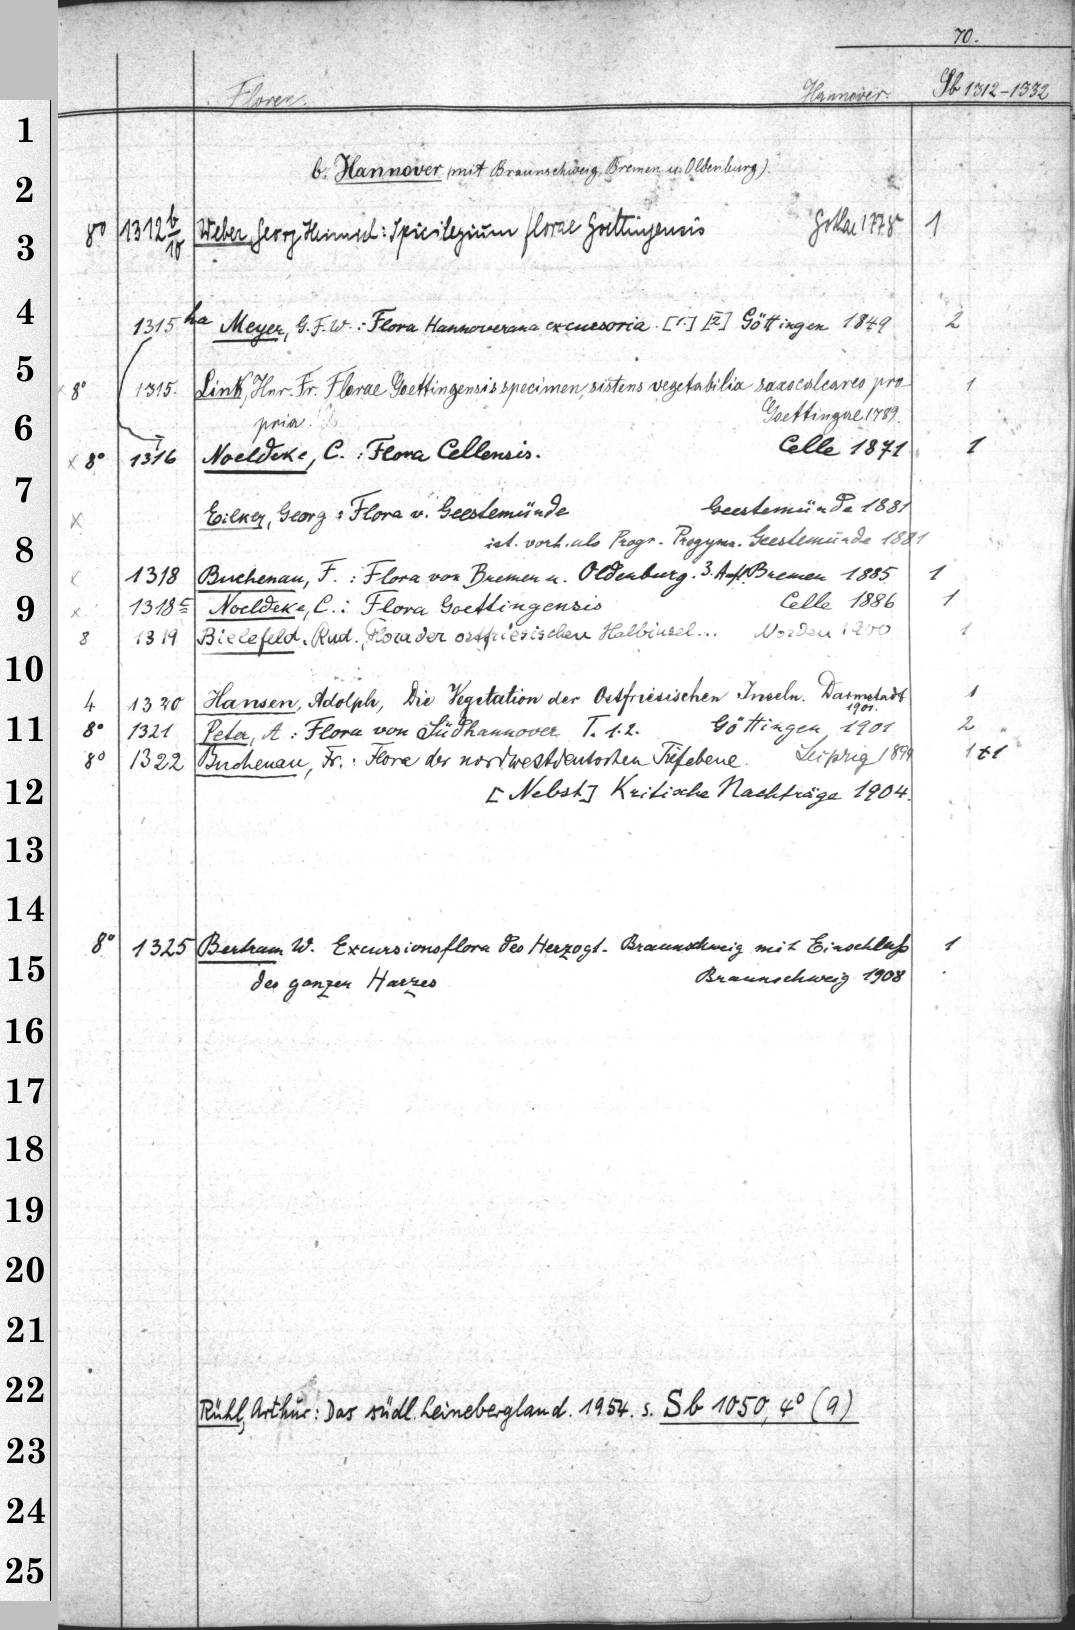 70.
Floren. Hannover. Sb 1312-1332
b. Hannover (mit Braunschweig, Bremen u. Oldenburg).
8° 1312 b/10 Weber, Georg Heinrich: Spicilegium florae Goettingensis Gothae 1778 1
1315 ha Meyer, G. F. W.: Flora Hannoverana excursoria. [1.] [2] Göttingen 1849 2
x 8° 1315. Link, Hnr. Fr. Florae Goettingensis specimen, sistens vegetabilia saxo calcareo pro- 1
pria. Goettingae 1789.
x 8° 1316 Noeldeke, C.: Flora Cellensis. Celle 1871 1
x Eilker, Georg: Flora v. Geestemünde Geestemünde 1881
ist vorh. als Progr. Progymn. Geestemünde 1881
x 1318 Buchenau, F.: Flora von Bremen u. Oldenburg. 3. Aufl. Bremen 1885 1
x 1318 c Noeldeke, C.: Flora Goettingensis Celle 1886 1
8 1319 Bielefeld, Rud., Flora der ostfriesischen Halbinsel... Norden 1900 1
4 1320 Hansen, Adolph, Die Vegetation der Ostfriesischen Inseln. Darmstadt 1
1901.
8° 1321 Peter, A.: Flora von Südhannover T. 1.2. Göttingen 1901 2
8° 1322 Buchenau, Fr.: Flora der nordwestdeutschen Tiefebene. Leipzig 1894 1+1
[Nebst] Kritische Nachträge 1904.
8° 1325 Bertram W. Excursionsflora des Herzogt. Braunschweig mit Einschluß 1
des ganzen Harzes Braunschweig 1908
Rühl, Arthur: Das südl. Leinebergland. 1954. s. Sb 1050, 4° (9)
1
2
3
4
5
6
7
8
9
10
11
12
13
14
15
16
17
18
19
20
21
22
23
24
25